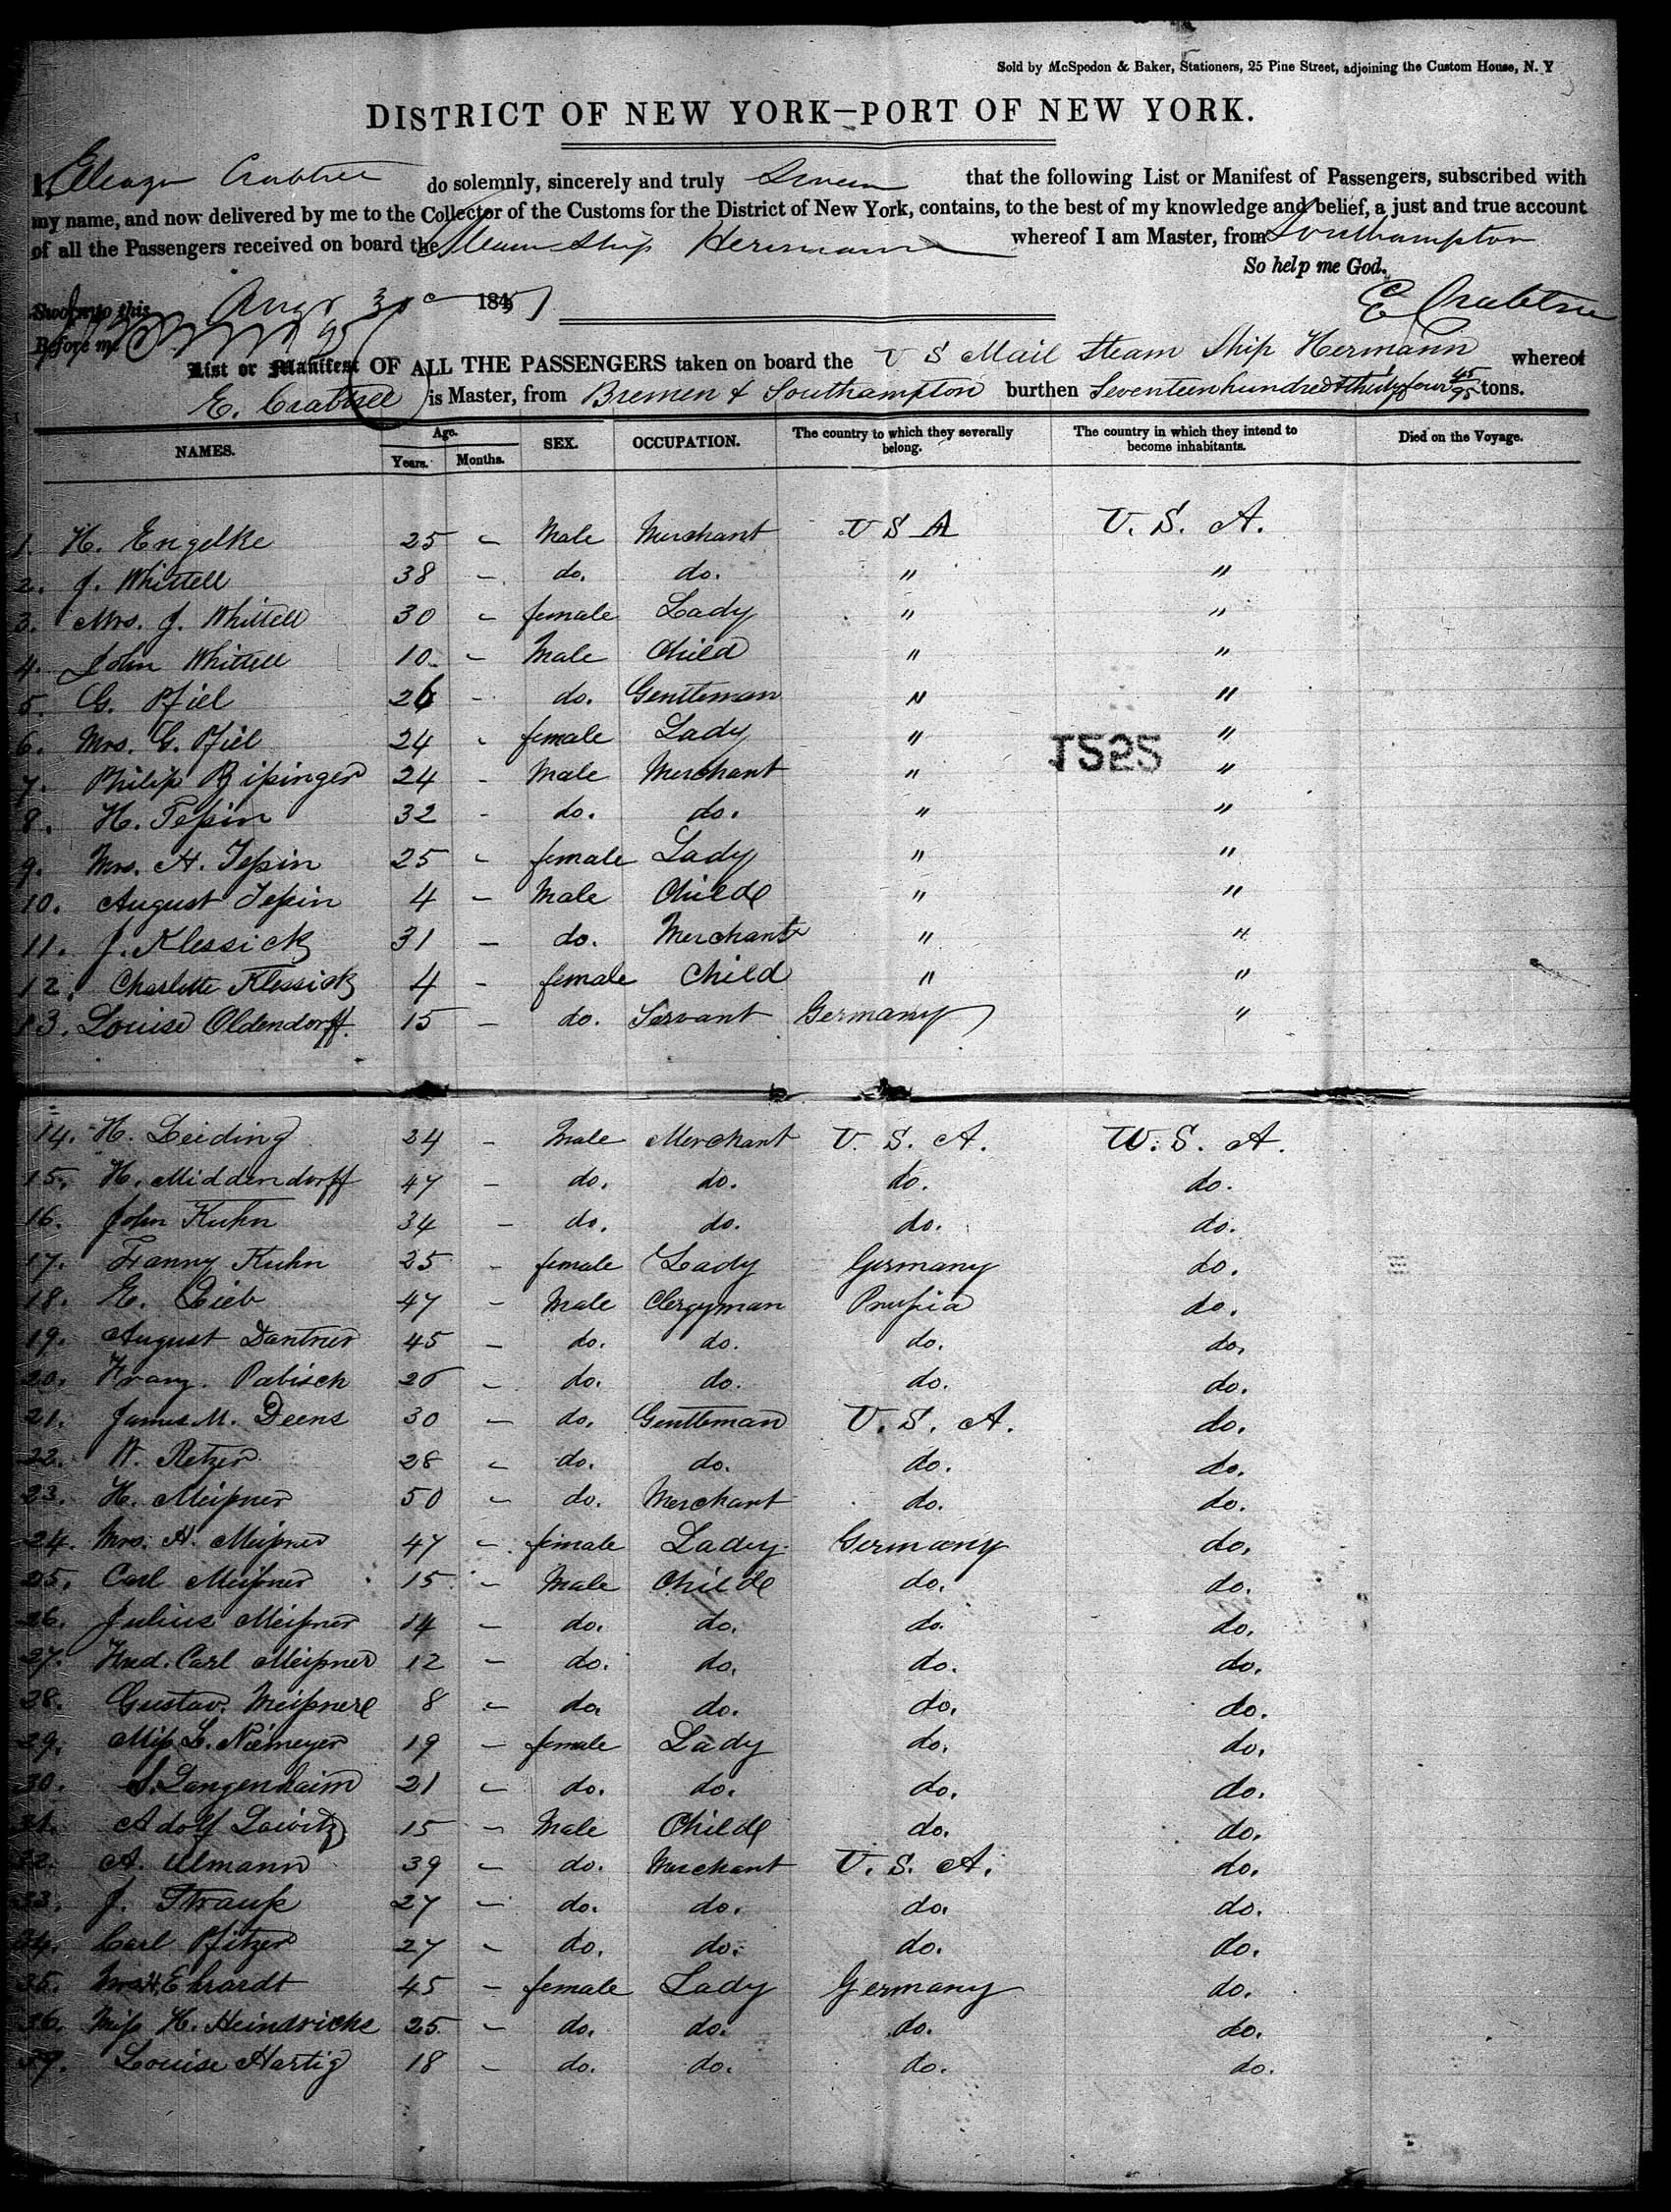 Sold by McSpedon & Baker, Stationers, 25 Pine Street, adjoining the Custom House, N. Y
DISTRICT OF NEW YORK—PORT OF NEW YORK.
I Crabtree do solemnly, sincerely and truly Swear that the following List or Manifest of Passengers, subscribed with
my name, and now delivered by me to the Collector of the Customs for the District of New York, contains, to the best of my knowledge and belief, a just and true account
of all the Passengers received on board the Steam Ship Hermann whereof I am Master, from Southampton
So help me God.
Sworn to this Augt 30 1851 E Crabtree
Before me
List or Manifest OF ALL THE PASSENGERS taken on board the U S Mail Steam Ship Hermann whereof
E. Crabtree is Master, from Bremen & Southampton burthen Seventeen hundred & thirty four 45/95 tons.
NAMES. Age. Years. Months. SEX. OCCUPATION. The country to which they severally belong. The country in which they intend to become inhabitants. Died on the Voyage.
1. H. Engelke 25 - Male Merchant U S A U. S. A.
2. J. Whittell 38 - do. do. " "
3. Mrs. J. Whittell 30 - female Lady " "
4. John Whittell 10 - Male Child " "
5. G. Pfiel 26 - do. Gentleman " "
6. Mrs. G. Pfiel 24 - female Lady " "
1525
7. Philip 24 - Male Merchant " "
8. H. Teßin 32 - do. do. " "
9. Mrs. H. Teßin 25 - female Lady " "
10. August Teßin 4 - Male Childe " "
11. J. Klessick 31 - do. Merchant " "
12. Charlotte Klessick 4 - female Child " "
13. Louise Oldendorff. 15 - do. Servant Germany "
14. H. Leiding 24 - Male Merchant U. S. A. U. S. A.
15. H. Middendorff 47 - do. do. do. do.
16. John Kuhn 34 - do. do. do. do.
17. Franny Kuhn 25 - female Lady Germany do.
18. E. Lieb 47 - Male Clergyman Prußia do.
19. August Dantner 45 - do. do. do. do.
20. Franz. Pabisch 26 - do. do. do. do.
21. James M. Deens 30 - do. Gentleman U. S. A. do.
22. W. Retzer 28 - do. do. do. do.
23. H. Meißner 50 - do. Merchant do. do.
24. Mrs. H. Meißner 47 - female Lady Germany do.
25. Carl Meißner 15 - Male Childe do. do.
26. Julius Meißner 14 - do. do. do. do.
27. Fred. Carl Meißner 12 - do. do. do. do.
28. Gustav. Meißnere 8 - do. do. do. do.
29. Miß L. Niemeyer 19 - female Lady do. do.
30. S. Langenhaim 21 - do. do. do. do.
31. Adolf Lowitz 15 - Male Childe do. do.
32. A. Ulmann 39 - do. Merchant U. S. A. do.
33. J. Strauß 27 - do. do. do. do.
34. Carl Pfitzer 27 - do. do. do. do.
35. Mrs. H. Ehrardt 45 - female Lady Germany do.
36. Miß H. Heindricke 25 - do. do. do. do.
37. Louise Hartig 18 - do. do. do. do.